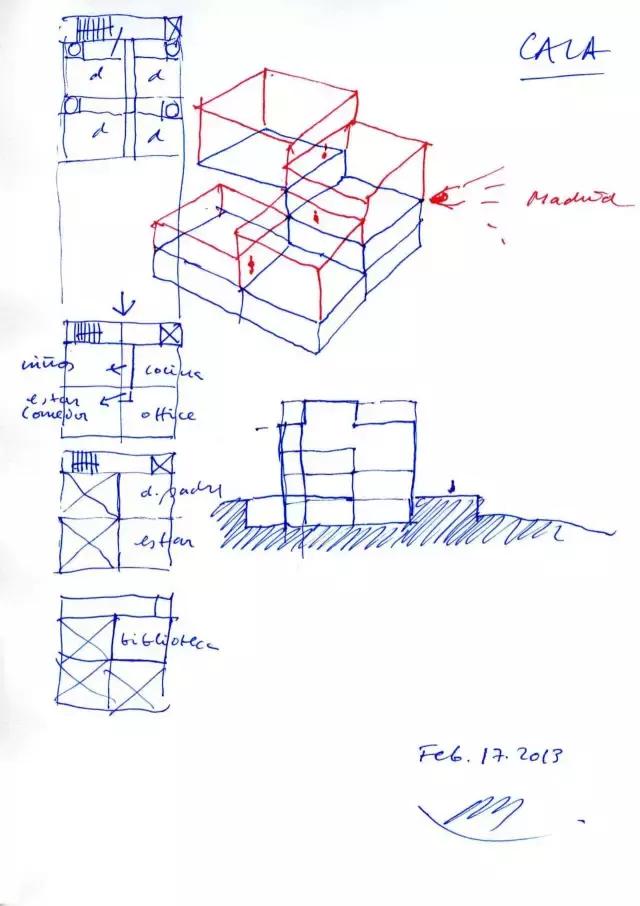 CALA
d d
d d
Madrid
niños cocina
estar
comedor office
d. padres
estar
biblioteca
Feb. 17. 2013